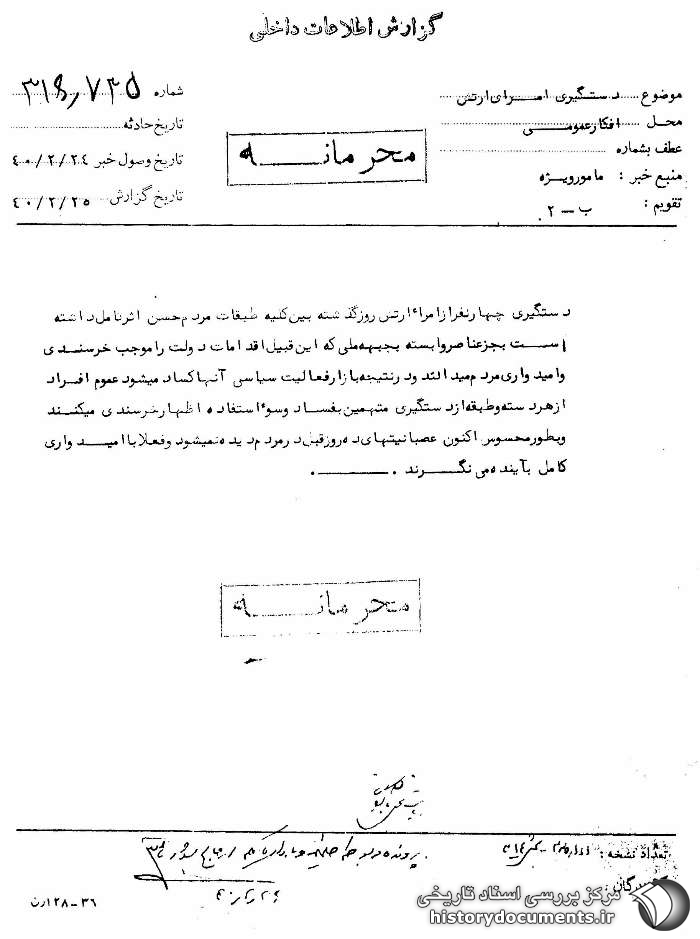 گزارش اطلاعات داخلی
موضوع دستگیری امرای ارتش
محل افکار عمومی
عطف بشماره
منبع خبر : مامور ویژه
تقویم : ب - ۲
شماره ۳۱۵/۷۳۵
تاریخ حادثه
تاریخ وصول خبر ۴۰/۲/۲۴
تاریخ گزارش ۴۰/۲/۲۵
محرمانه
دستگیری چهار نفر از امراء ارتش روز گذشته بین کلیه طبقات مردم حسن اثر نامل داشته
است بجز عناصر وابسته بجبهه ملی که این قبیل اقدامات دولت را موجب خرسندی
و امیدواری مردم میدانند و در نتیجه بازار فعالیت سیاسی آنها کساد میشود عموم افراد
از هر دسته و طبقه از دستگیری متهمین بفساد و سوء استفاده اظهار خرسندی میکنند
و بطور محسوس اکنون عصبانیتهای ده روز قبل در مردم دیده نمیشود و فعلا با امیدواری
کامل بآینده می نگرند .
محرمانه
تعداد نسخه :
گیرندگان :
۳۶-۱۲۸ ارن
مرکز بررسی اسناد تاریخی
historydocuments.ir